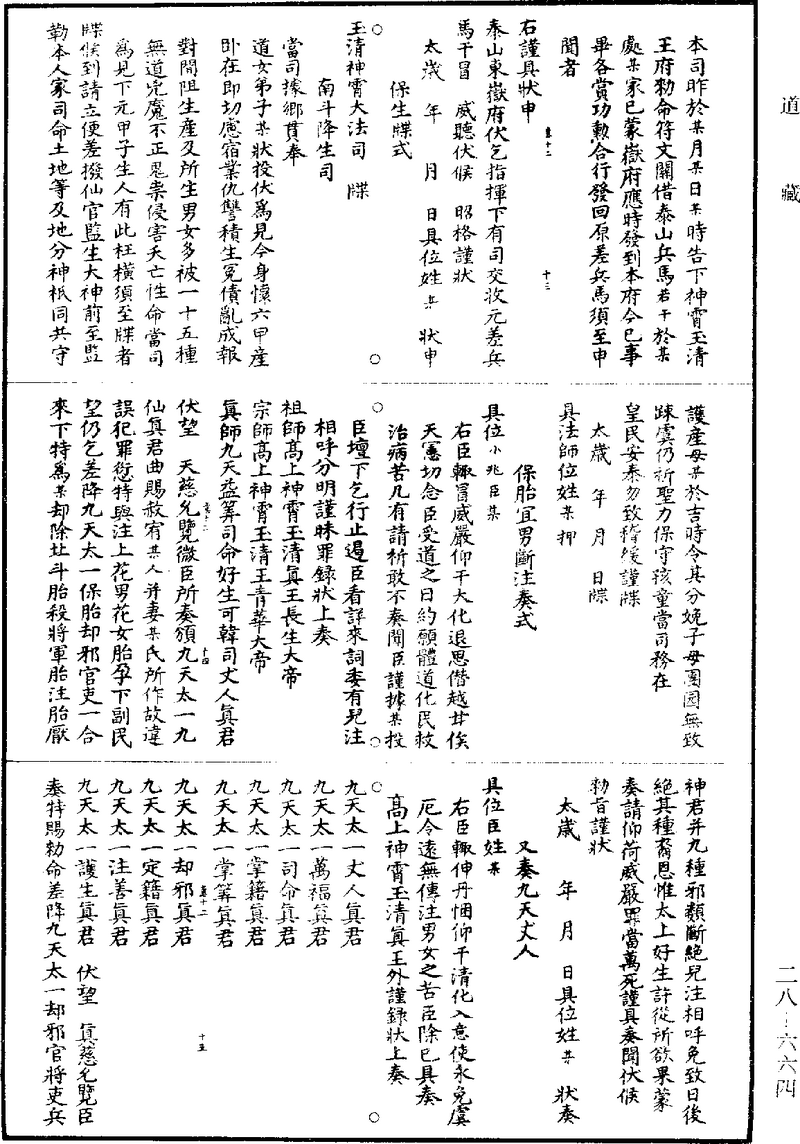 道藏
本司昨於某月某日某時告下神霄玉清
王府勑命符文關借泰山兵馬若干於某
處某家已蒙嶽府應時發到本府今已事
畢各賞功勲合行發回原差兵馬須至申
聞者
右謹具狀申
泰山東嶽府伏乞指揮下有司交收元差兵
馬干冒　威聽伏候　昭格謹狀
太歲　年　月　日具位姓某　狀申
保生牒式
玉清神霄大法司　牒
南斗降生司
當司據鄉貫奉
道女弟子某狀投伏爲見今身懷六甲産
卧在即切慮宿業仇讐積生冤債亂成報
對間阻生産及所生男女多被一十五種
無道兇魔不正鬼祟侵害夭亡性命當司
爲見下元甲子生人有此枉橫須至牒者
牒候到請立便差撥仙官監生大神前至監
勒本人家司命土地等及地分神祇同共守
護産母某於吉時令其分娩子母團圓無致
踈虞仍祈聖力保守孩童當司務在
皇民安泰勿致稽緩謹牒
太歲　年　月　日牒
具法師位姓某押
保胎宜男斷注奏式
具位小兆臣某
右臣輙冒威嚴仰干大化退思僭越甘俟
天憲切念臣受道之日約願體道化民救
治病苦凡有請祈敢不奏聞臣謹據某投
臣壇下乞行止遏臣看詳來詞委有兒注
相呼分明謹昧罪録狀上奏
祖師髙上神霄玉清真王長生大帝
宗師髙上神霄玉清王青華大帝
眞師九天益筭司命好生可韓司丈人眞君
伏望　天慈允覽微臣所奏頒九天太一九
仙眞君曲賜赦宥某人并妻某氏所作故違
誤犯罪愆特與注上花男花女胎孕下副民
望仍乞差降九天太一保胎却邪官吏一合
來下特爲某却除北斗胎殺將軍胎注胎厭
神君并九種邪類斷絶兒注相呼免致日後
絶其種裔恩惟太上好生許從所欲果蒙
奏請仰荷威嚴罪當萬死謹具奏聞伏候
勑旨謹狀
太歲　年　月　日具位姓某　狀奏
又奏九天丈人
具位臣姓某
右臣輙伸丹悃仰干清化入意使永免虞
厄令遠無傳注男女之苦臣除已具奏
髙上神霄玉清眞王外謹録狀上奏
九天太一丈人眞君
九天太一萬福眞君
九天太一司命眞君
九天太一掌籍眞君
九天太一掌筭眞君
九天太一却邪眞君
九天太一定籍眞君
九天太一注善眞君
九天太一護生眞君　伏望　眞慈允覽臣
奏特賜勑命差降九天太一却邪官將吏兵
二八－六六四
十三
十四
十五